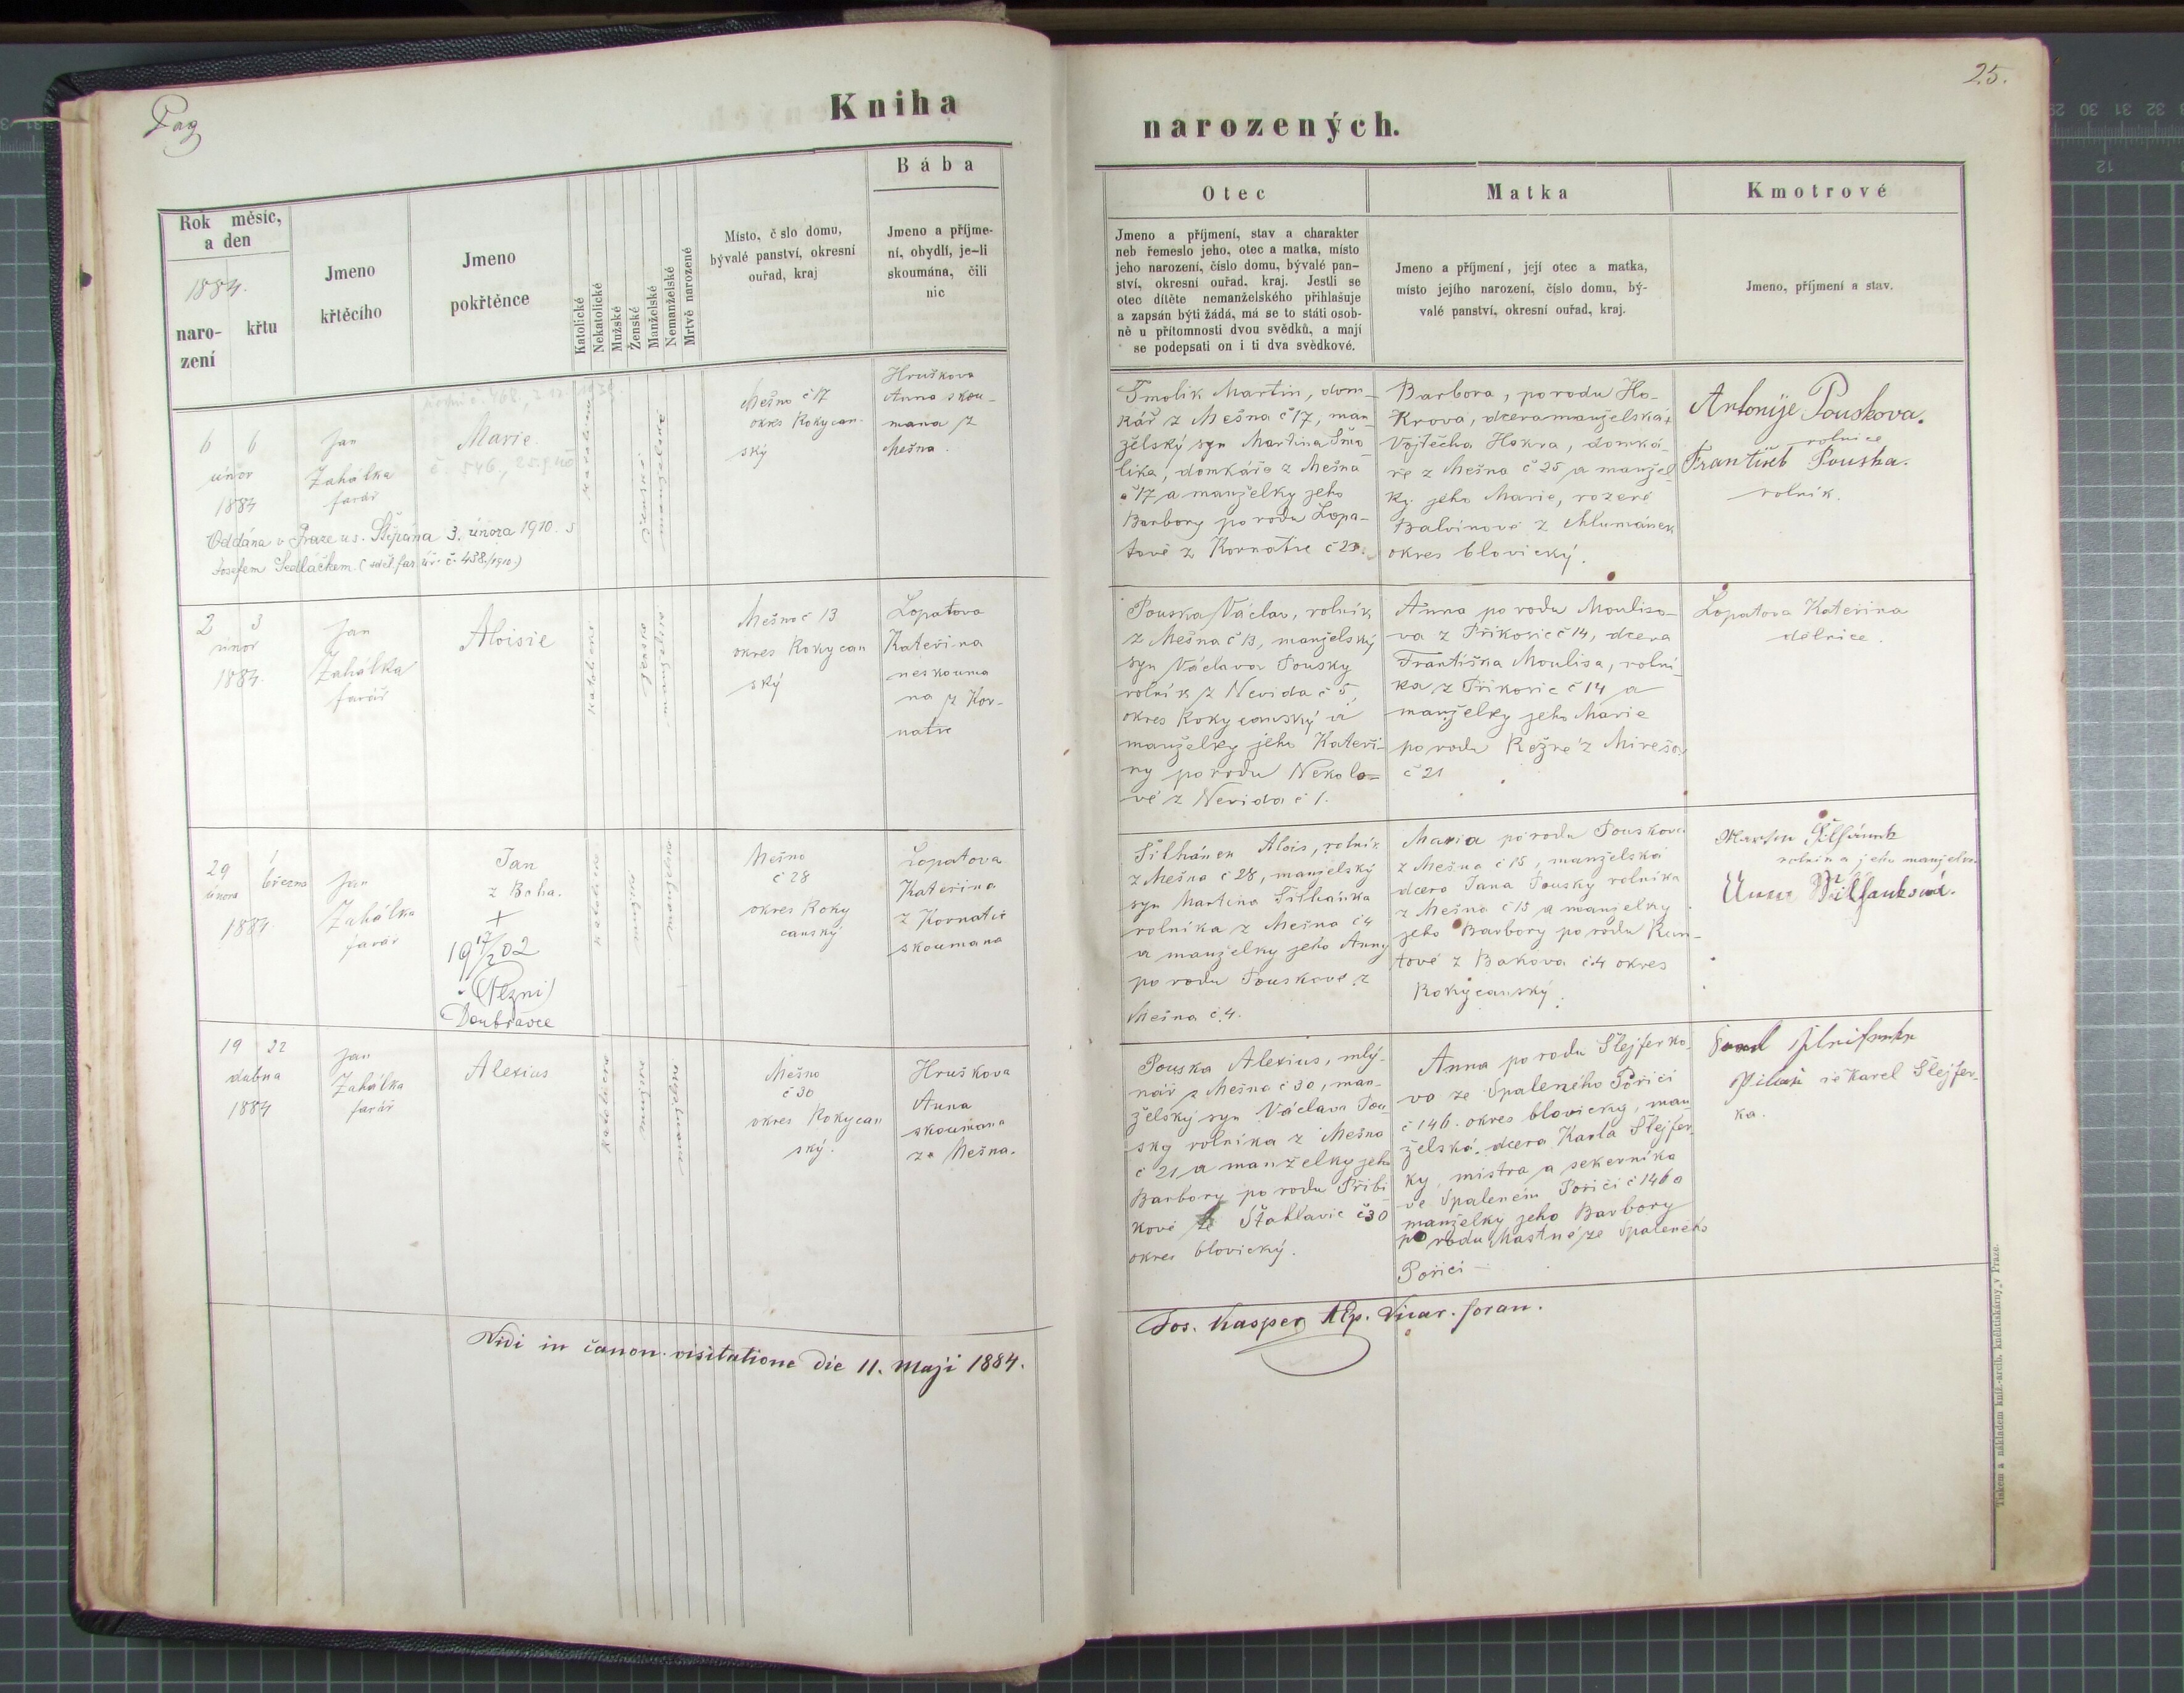 Pag
Kniha
Bába
Rok měsíc,
a den
1884.
naro-
zení
křtu
Jmeno
křtěcího
Jmeno
pokřtěnce
Katolické
Nekatolické
Mužské
Ženské
Manželské
Nemanželské
Mrtvě narozené
Místo, č slo domu,
bývalé panství, okresní
ouřad, kraj
Jmeno a příjme-
ní, obydlí, je-li
skoumána, čili
nic
6 6
únor
1884
Jan
Zahálka
farář
Marie.
č. 546., 25.9.40
katolické
ženské
manželské
Mešno č 17
okres Rokycan-
ský
Hruškova
Anna skou-
mana z
Mešna.
Oddána v Praze u s. Štěpána 3. února 1910. s
Josefem Sedláčkem. (sděl. far. úř. č. 438/1910.)
2 3
únor
1884.
Jan
Zahálka
farář
Aloisie
katolické
ženské
manželské
Mešno č 13
okres Rokycan
ský
Lopatova
Kateřina
neskouma
na z Kor-
natic
29 1
února března
1884.
Jan
Zahálka
farář
Jan
z Boha.
+
19 17/2 02
(Plzni)
Doubravce
katolické
mužské
manželské
Mešno
č 28
okres Roky
canský
Lopatova
Kateřina
z Kornatic
skoumana
19 22
dubna
1884
Jan
Zahálka
farář
Alexius
katolické
mužské
manželské
Mešno
č 30
okres Rokycan
ský.
Hruškova
Anna
skoumana
z Mešna.
Vidi in canon. visitatione die 11. Maji 1884.
25.
narozených.
Otec
Matka
Kmotrové
Jmeno a příjmení, stav a charakter
neb řemeslo jeho, otec a matka, místo
jeho narození, číslo domu, bývalé pan-
ství, okresní ouřad, kraj. Jestli se
otec dítěte nemanželského přihlašuje
a zapsán býti žádá, má se to státi osob-
ně u přítomnosti dvou svědků, a mají
se podepsati on i ti dva svědkové.
Jmeno a příjmení, její otec a matka,
místo jejího narození, číslo domu, bý-
valé panství, okresní ouřad, kraj.
Jmeno, příjmení a stav.
Smolik Martin, dom-
kář z Mešna č 17, man
želský syn Martina Smo
lika, domkáře z Mešna
č 17 a manželky jeho
Barbory po rodu Lopa-
tově z Kornatic č 23.
Barbora, po rodu Ho-
krova, dcera manželská
Vojtěcha Hokra, domká-
ře z Mešna č 25 a manžel
ky jeho Marie, rozené
Balvínové z Chlumánek
okres blovický.
Antonije Pouskova.
rolnice
František Pouska.
rolník.
Pouska Václav, rolník
z Mešna č 13, manželský
syn Václava Pousky
rolník z Nevida č 5,
okres Rokycanský a
manželky jeho Kateři-
ny po rodu Nekolo-
vé z Nevida č 1.
Anna po rodu Mouliso-
va z Příkosic č 14, dcera
Františka Moulisa, rolní
ka z Příkosic č 14 a
manželky jeho Marie
po rodu Režné z Mirešov
č 21
Lopatova Kateřina
dělnice.
Šilhánek Alois, rolník
z Mešna č 28, manželský
syn Martina Šilhánka
rolníka z Mešna č 4
a manželky jeho Anny
po rodu Pouskové z
Mešna č 4.
Maria po rodu Pouskova
z Mešna č 15, manželská
dcera Jana Pousky rolníka
z Mešna č 15 a manželky
jeho Barbory po rodu Kun-
tové z Bakova č 4 okres
Rokycanský.
Martin Šilhánek
rolník a jeho manželka
Anna Šilhanková.
Pouska Alexius, mlý-
nář z Mešna č 30, man-
želský syn Václava Pou-
sky rolníka z Mešna
č 21 a manželky jeho
Barbory po rodu Přibi
kové ze Štahlavic č 30
okres blovický.
Anna po rodu Šlejferko-
va ze Spaleného Poříčí
č 146. okres blovický, man
želská dcera Karla Šlejfer
ky, mistra a sekerníka
ve Spaleném Poříčí č 146 a
manželky jeho Barbory
po rodu Mastné ze Spaleného
Poříčí
Karel Šlejfer-
ka.
Jos. Kasper AEp. Vicar. foran.
Tiskem a nákladem kníž.-arcib. knihtiskárny v Praze.